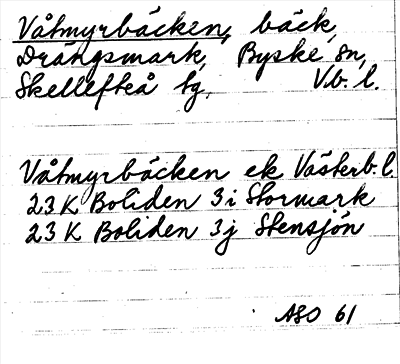 Våtmyrbäcken, bäck,
Drängsmark, Byske sn,
Skellefteå tg. V.b.l.
Våtmyrbäcken ek Västerb.l.
23K Boliden 3i Stormark
23K Boliden 3j Stensjön
ASO 61